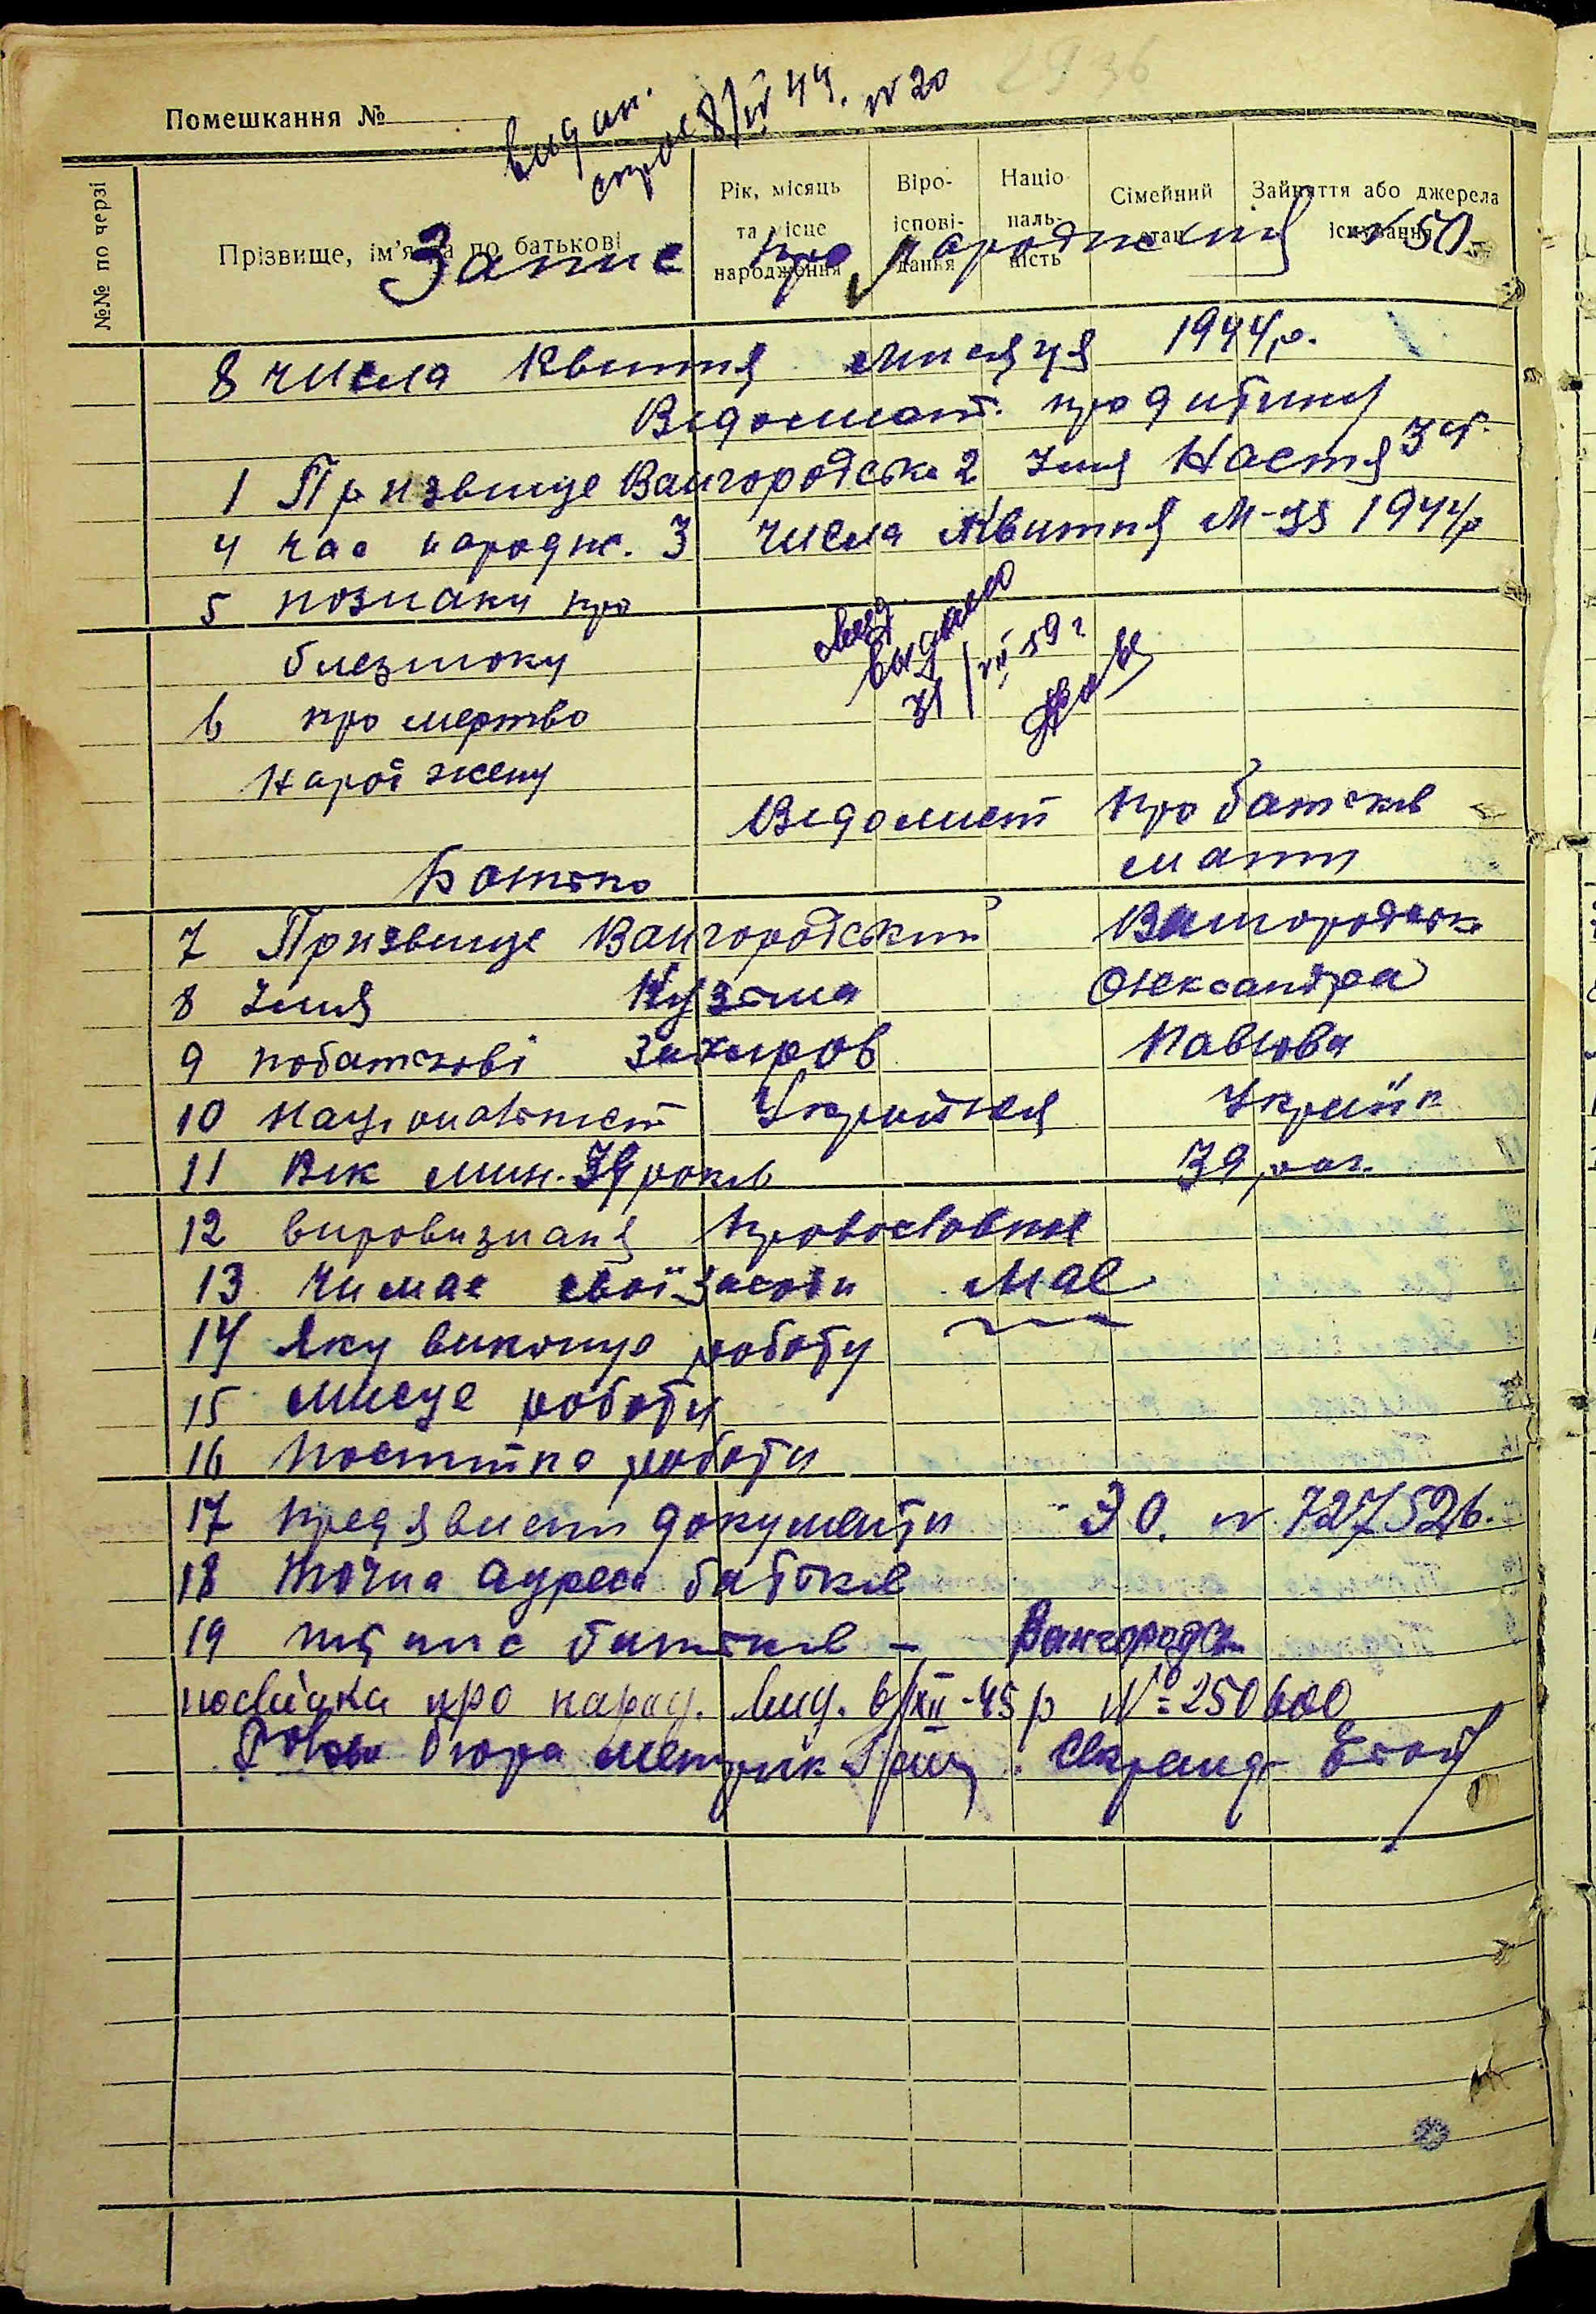 2936
Помешкання №
видан.
спрас 8/IV 44. № 20
№№ по черзі
Прізвище, ім'я та по батькові
Рік, місяць та місце народження
Віро-іспові-дання
Націо-наль-ність
Сімейний стан
Зайняття або джерела існування
Запис про народження №50
8 числа Квитня Мисяця 1944р.
Ведомост. про дитину
1 Призвище Вангородська 2 Імя Настя 3 ч.
4 час народж. 3 числа Квитня М-ця 1944р
5 познаки про
близнюку
6 про мертво
Нарожжену
видано
31/VII 59 г
Ведомист про батькив
Батько мати
7 Призвище Вангородський Вангородськ
8 Імя Кузьма Олександра
9 побатькові Захаров Павлова
10 Национальност Українця Україн
11 Вик мин. 39 рокив 39 рок.
12 вировизнаня Православное
13 Чи мае свої засоби Мае
14 Яку виконуе роботу
15 мисце роботи
16 постійна робота
17 предявлени документи ЗО. № 727526.
18 точна адреса батькив
19 підпис батькив – Вангородск
посвідка про народ. вид. 6/XII-45 р № 250600
Голова бюра метрик